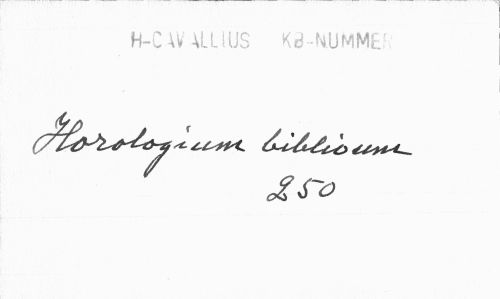 H-CAVALLIUS KB-NUMMER
Horologium biblicum
250